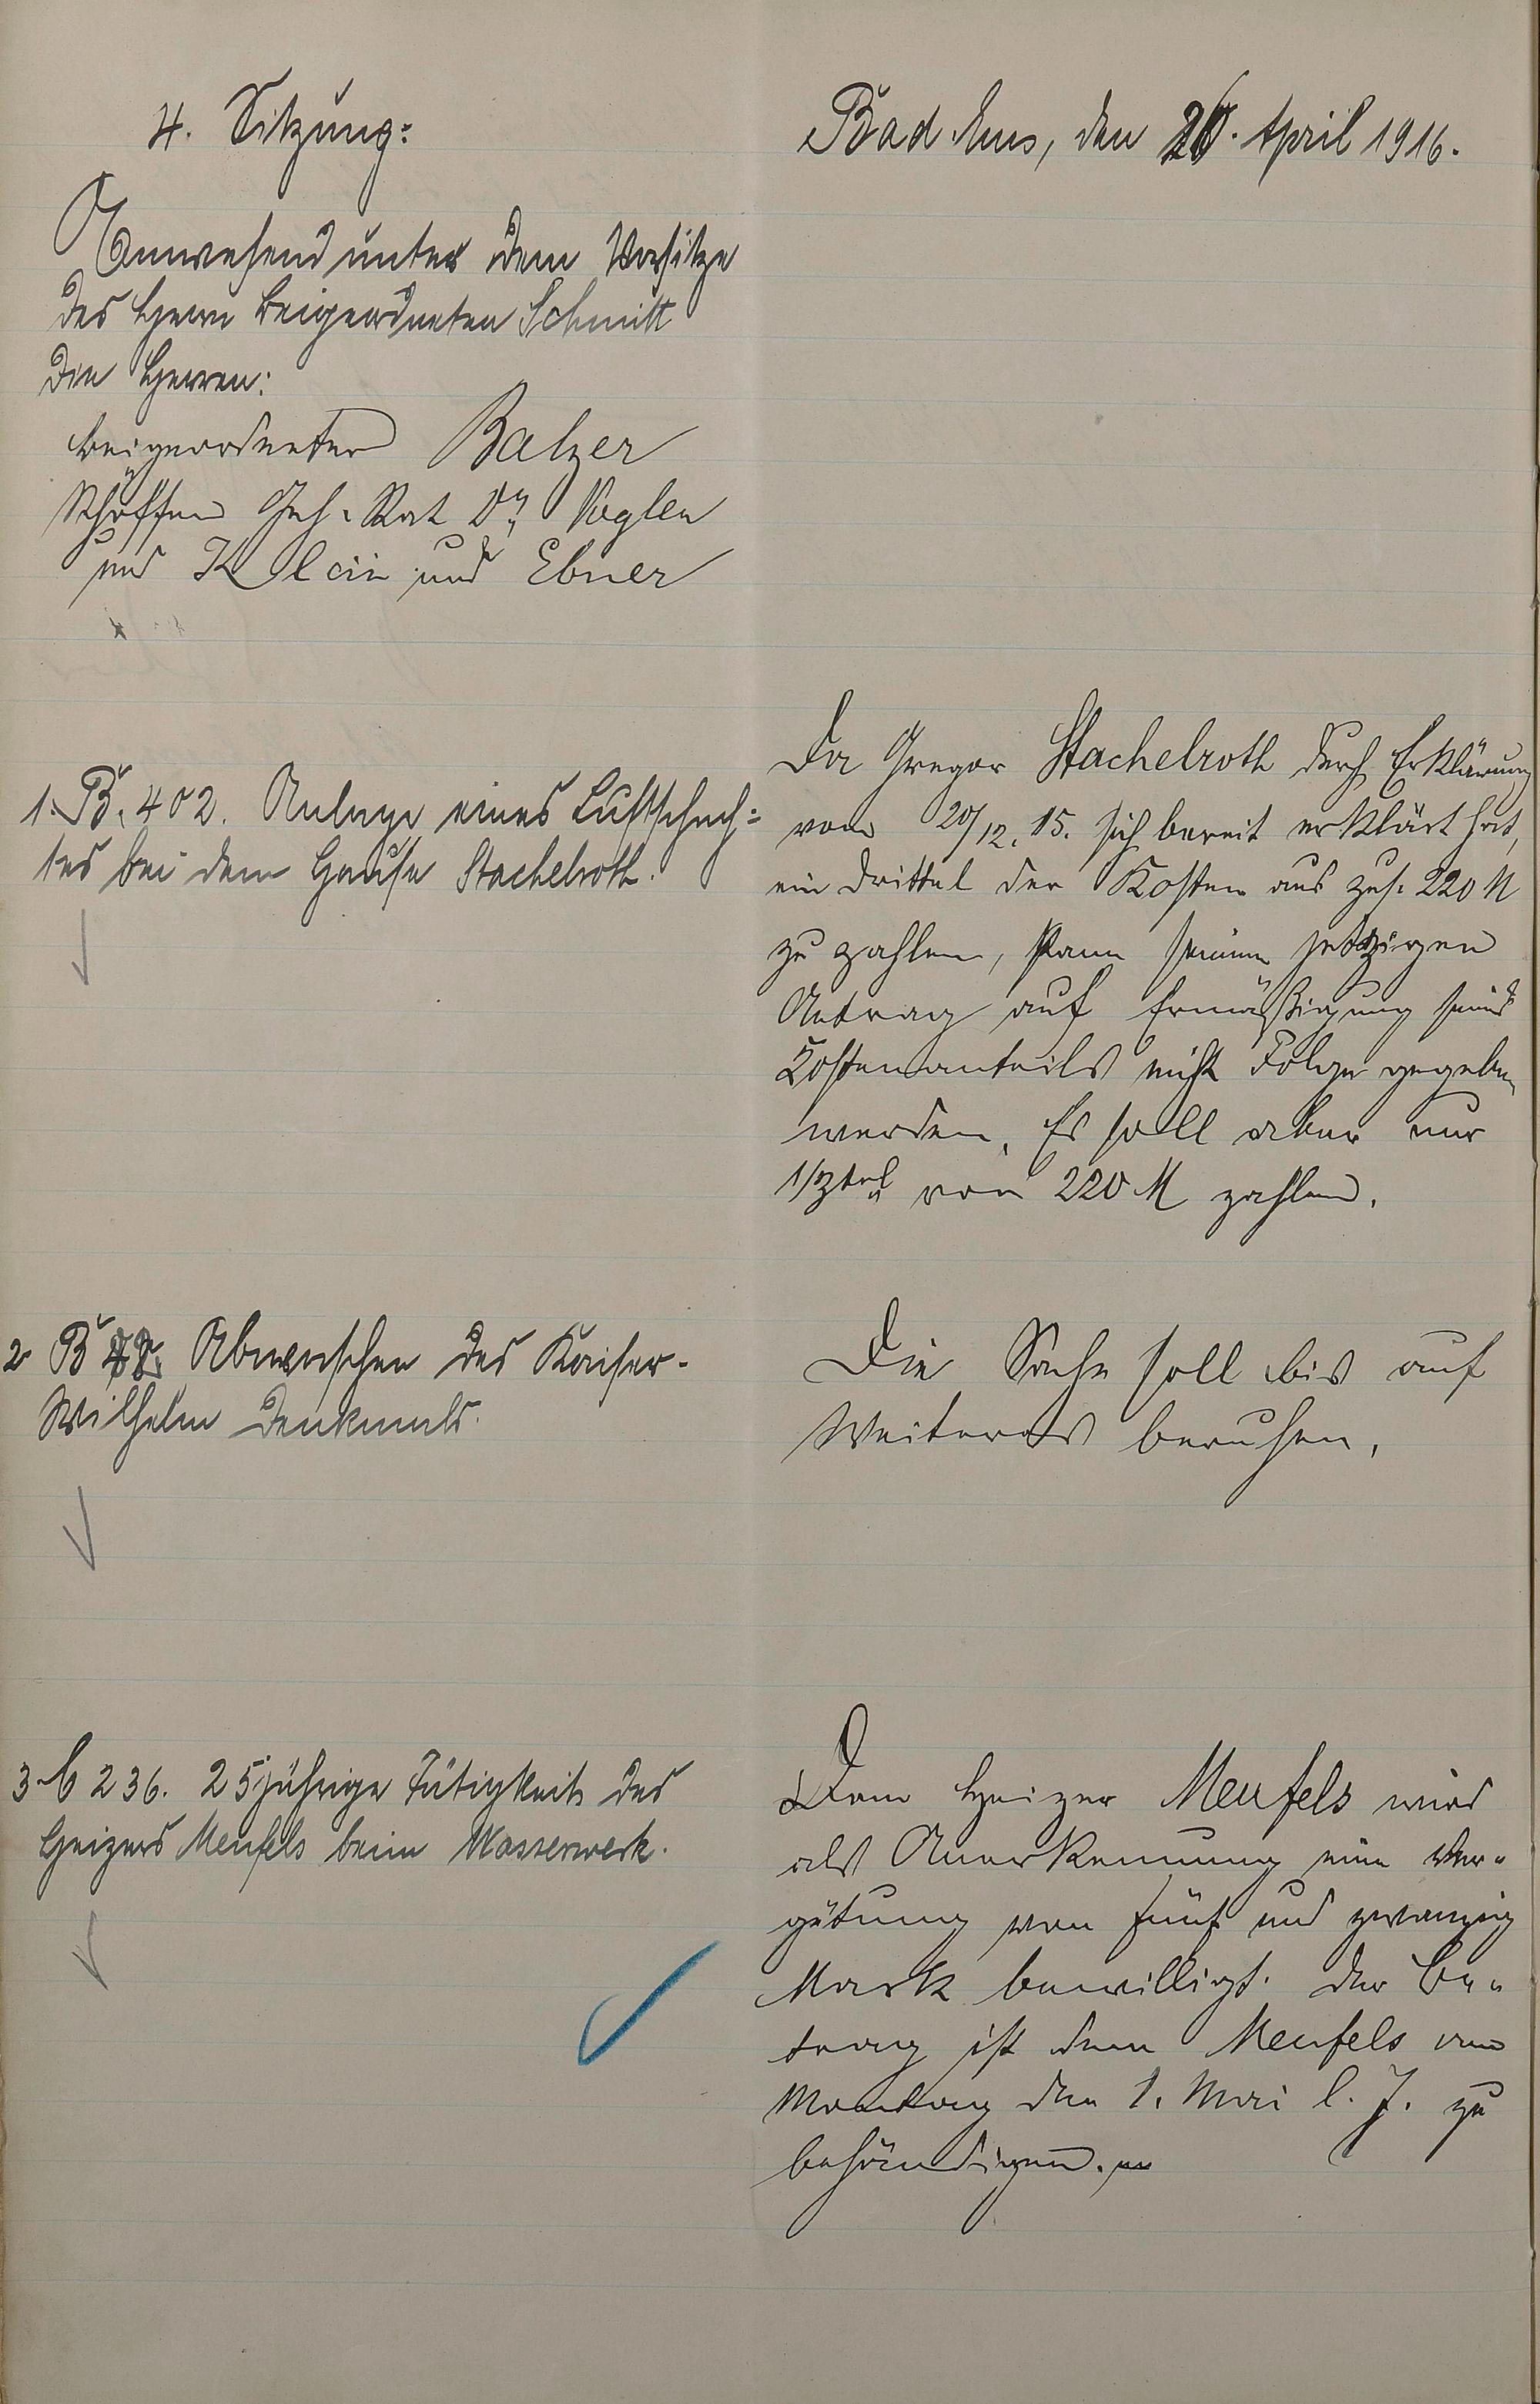 4. Sitzung:
Bad Ems, den 20. April 1916.
Anwesend unter dem Vorsitze
des Herrn Beigeordneten Schmitt
die Herren:
Beigeordneter Balzer
Schöffen Geh. Rat Dr. Vogler
und Klein und Ebner
1. B. 402. Anlage eines Luftschach-
tes bei dem Hause Stachelroth.
Da Gregor Stachelroth durch Erklärung
vom 20/12. 15. sich bereit erklärt hat,
ein Drittel der Kosten aus zus. 220 M
zu zahlen, kann seinem jetzigen
Antrag auf Ermäßigung seines
Kostenanteils nicht Folge gegeben
werden. Er soll aber nur
1/3tel von 220 M zahlen.
2 B Abwaschen des Kaiser-
Wilhelm Denkmals.
Die Sache soll bis auf
Weiteres beruhen.
3. C 236. 25jährige Tätigkeit des
Heizers Meufels beim Wasserwerk.
Dem Heizer Meufels wird
als Anerkennung eine Ver-
gütung von fünf und zwanzig
Mark bewilligt. Der Be-
trag ist dem Meufels am
Montag den 1. Mai l. J. zu
behändigen.